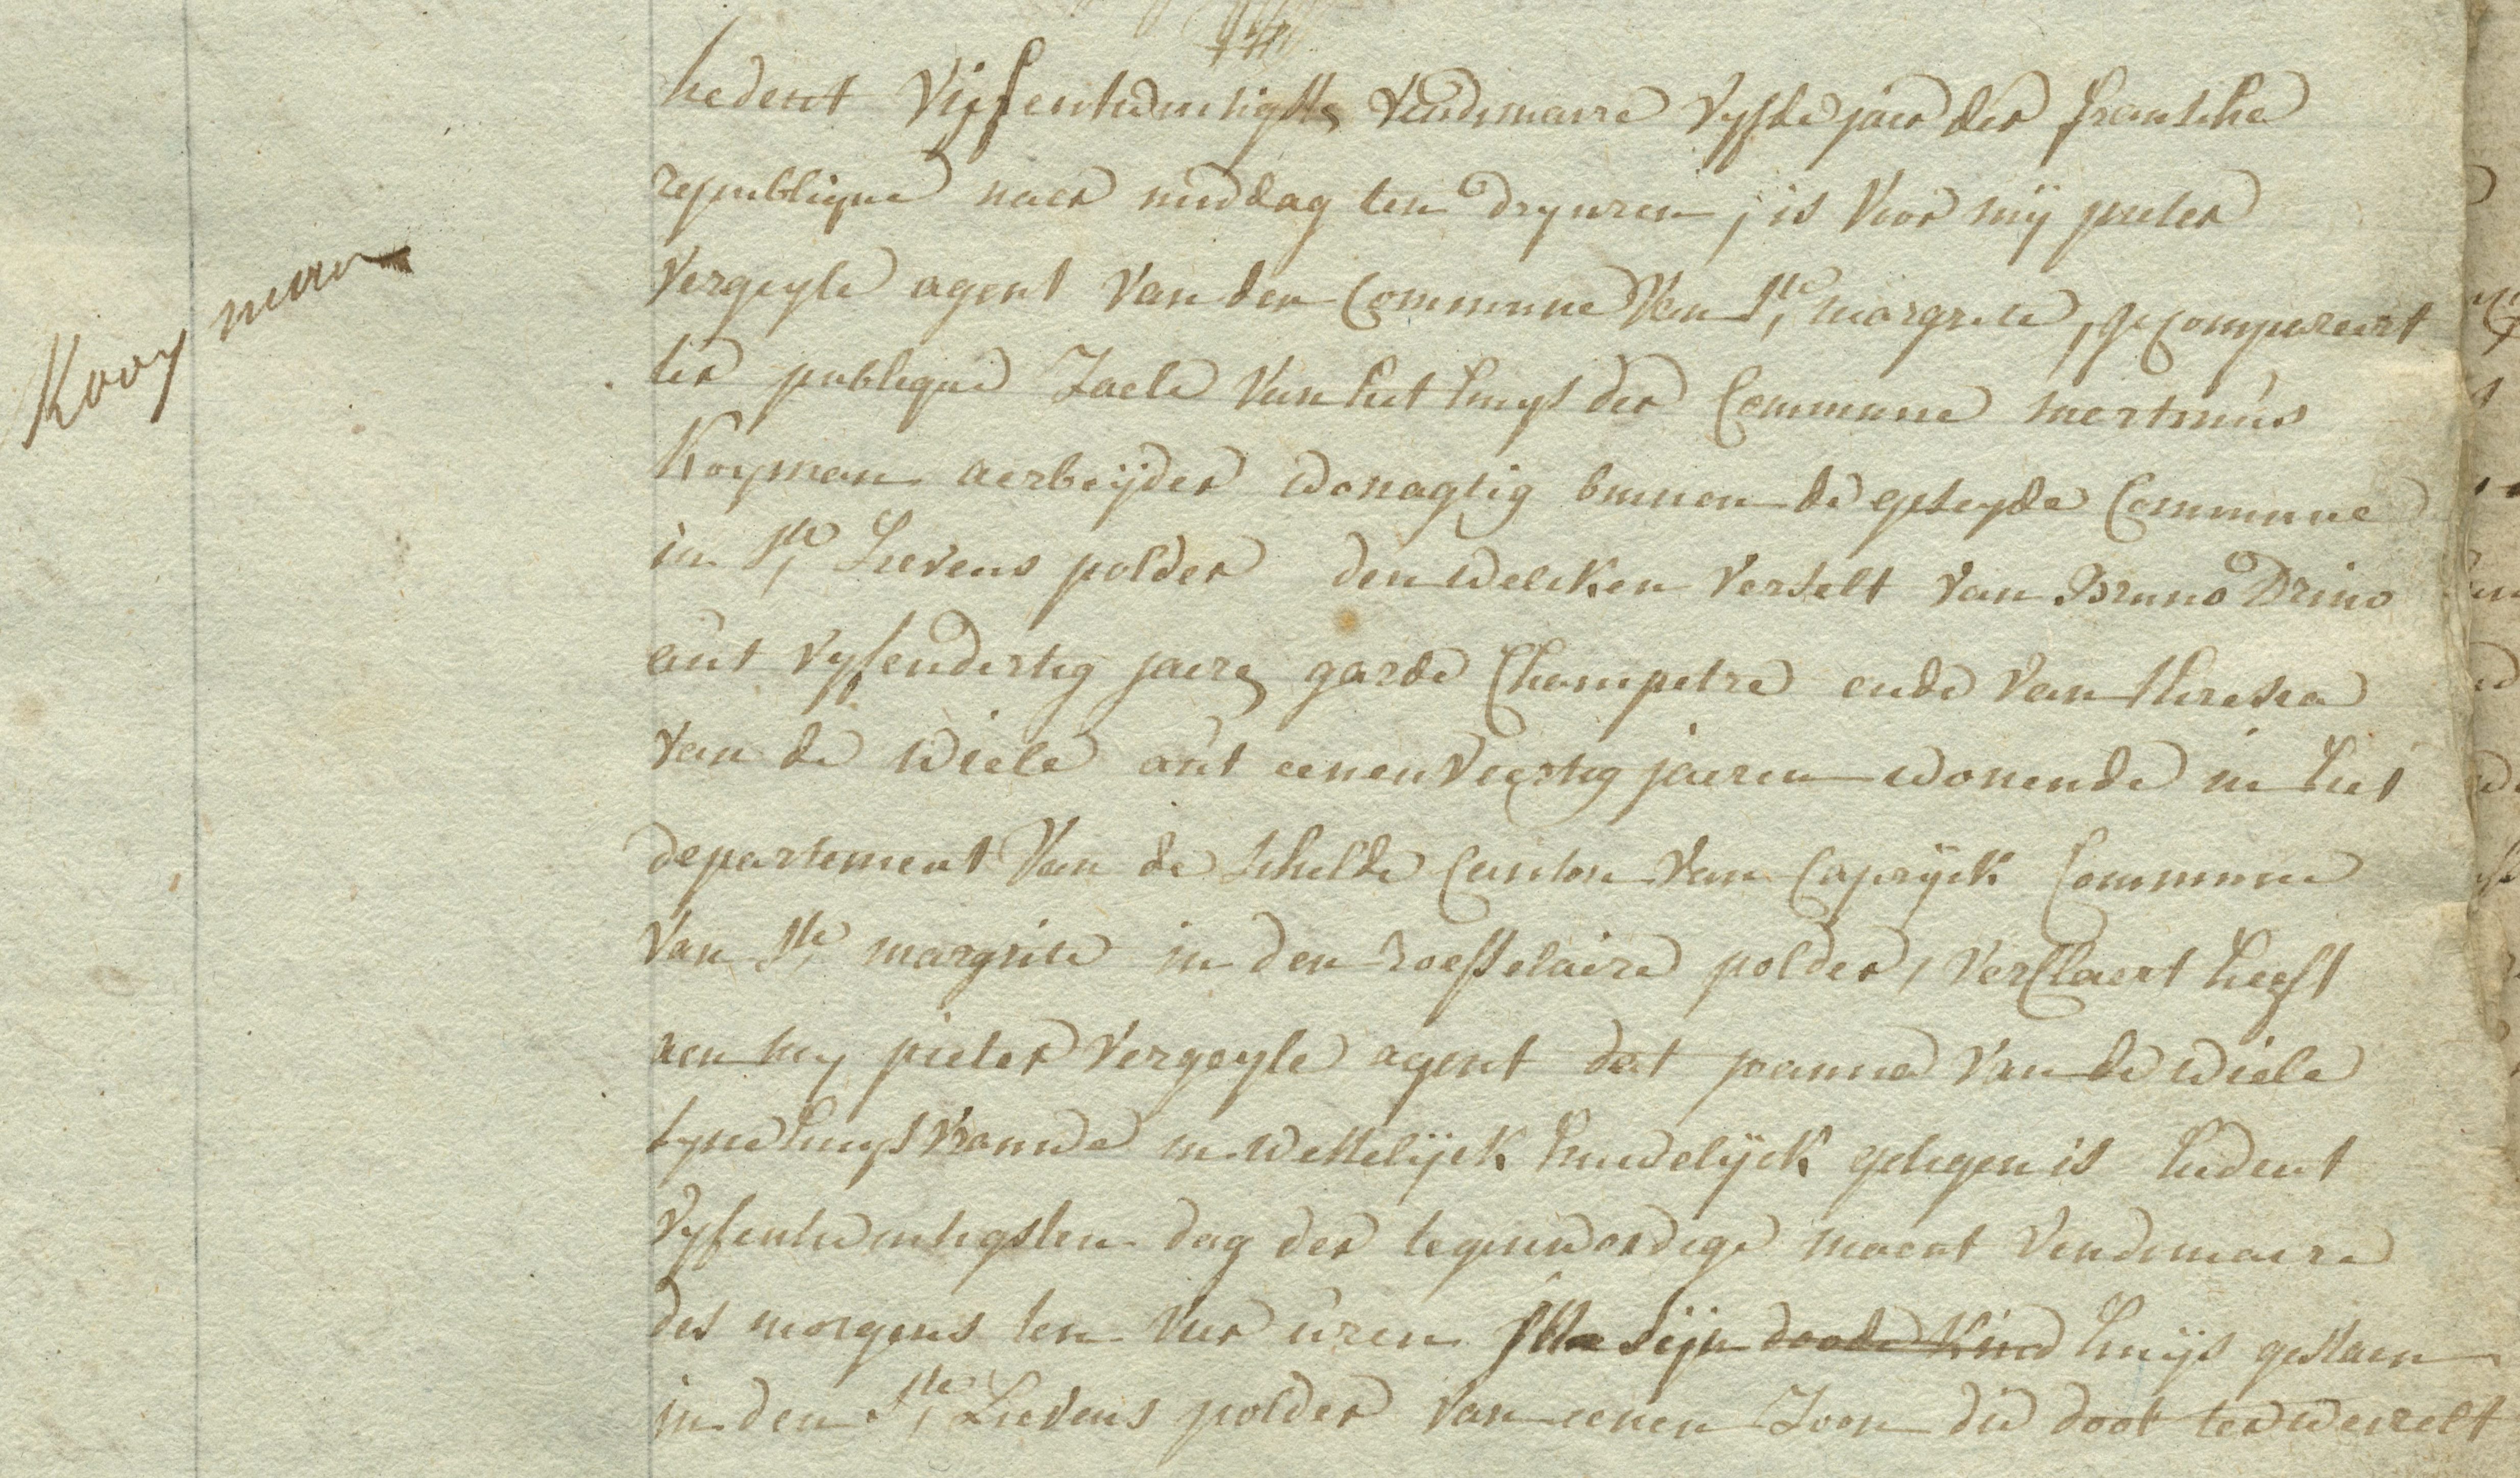 Kooyman
hedent Vijfentwintigste Vendimaire Vyfde jaer der fransche
republique naer middag ten dry uren, is Voor mij pieter
Vergeyle agent Van den Commune Van Ste margriete, gecompareert
ter publique Zaele Van het huys der Commune martinus
Koyman aerbeijder wonagtig binnen de geseyde Commune
in Ste Lievens polder den welcken verselt van Bruno Drino
out vyfendertig jaere garde Champetre ende van theresia
van de wiele out eenenveertig jaeren wonende in het
departement Van de schelde Canton Van Capryck Commune
van Ste margriete in den roesselaire polder, verClaert heeft
aen my pieter Vergeyle agent dat joanna Van de wiele
syne huysvrouwe in wettelijck huwelijck gelegen is hedent
vyfentwintigsten dag der tegenwordige maent Vendimaire
des morgens ten vier uren sijn doode Kind huijs gestaen
in den Ste Lievens polder van eenen Zoon die doot ter werelt